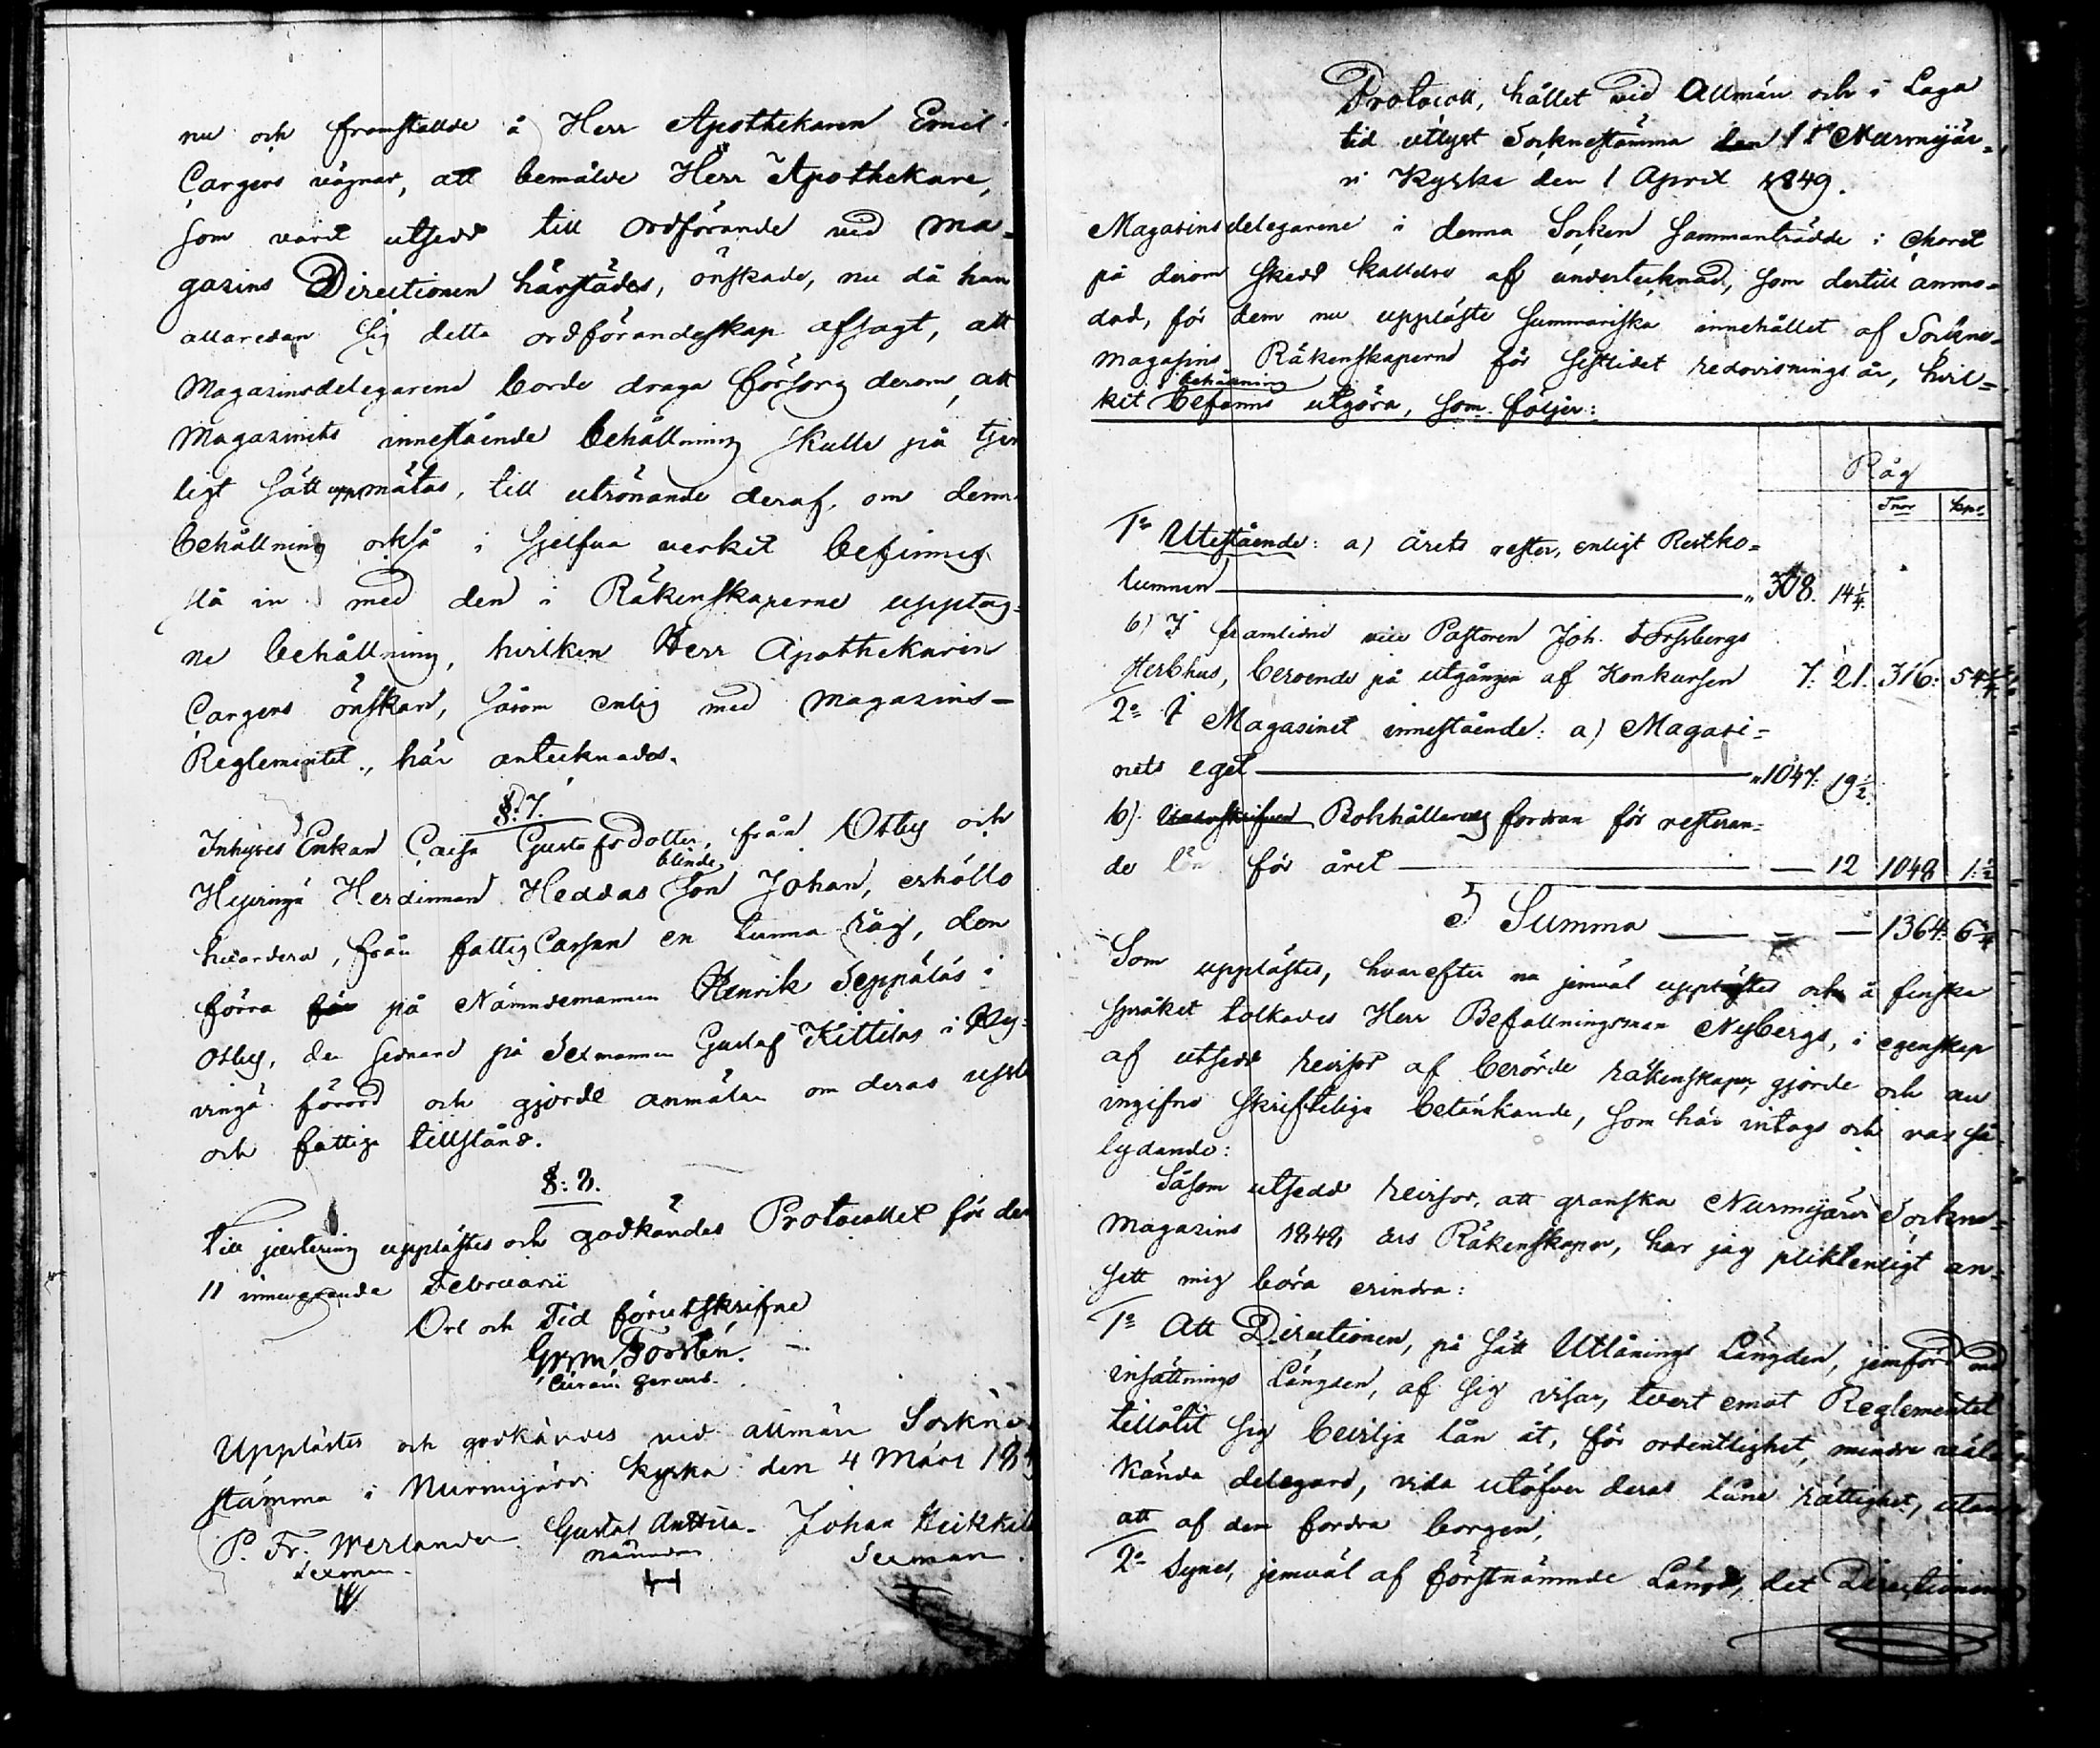 nu och framställde å Herr Apothekaren Emil
Cargers vägnar, att bemälde Herr Apothekare,
som varit utsedd till ordförande vid Ma-
gasins Directionen härstädes, önskade, nu då han
allaredan sig detta ordförandeskap afsagt, att
Magasinsdelegarena borde draga försorg derom, att
Magasinets innestående behållning skulle på tjen
ligt sätt uppmätas, till utrönande deraf, om denna
behållning också i sjelfva verket befinnes
slå in med den i Räkenskaperne upptag-
ne behållning, hvilken Herr Apothekaren
Cargers önskan, såsom enlig med Magasins-
Reglementet, här antecknades.
§: 7.
Inhyses Enkan Caisa Gustafsdotter, från Otby och
Hyvingä Herdinnan Heddas blinde Son Johan, erhöllo
hvardera, från fattig Cassan en tunna råg, den
förra för på Nämndemannen Henrik Seppäläs i
Otby, den sednare på Sexmannen Gustaf Kittiläs i Hy-
vingä förord och gjorde anmälan om deras
och fattiga tillstånd.
§: 8.
Till justering upplästes och godkändes Protocollet för den
11 innevarande Februarii
Ort och Tid förutskrifne
Forstén.
Curam gerens.
Upplästes och godkändes vid allmän Sockne
stämma i Nurmijärvi kyrka den 4 Mars 184
P. Fr. Werlander Gustaf Anttila Johan Heikkilä
Sexman. Nämndem Sexman.
Protocoll, hållet vid Allmän och i Laga
tid utlyst Socknestämma den 1 i Nurmijär-
vi Kyrka den 1 April 1849.
Magasinsdelegarene i denna Socken sammanträdde i Choret
på derom skedd kallelse af undertecknad, som dertill anmo-
dad, för dem nu uppläste summariska innehållet af Sockne-
magasins Räkenskaperne för sistlidet redovisnings år, hvil-
ket behållning befanns utgöra, som följer:
Råg
Tnor kpr
1o Utestående: a) årets rester, enligt Restko-
lumnen 308. 14 1/4.
b) I framlidne vice Pastoren Joh. Forsbergs
Sterbhus, beroende på utgången af Konkursen 7: 21. 316: 5 1/4
2o I Magasinet innestående: a) Magasi-
nets eget 1047: 19 1/2.
b). Bokhållarens fordran för resteran-
de lön för året 12 1048 1 1/2
Summa 1364: 6 3/4
Som upplästes, hvarefter nu jemväl upplästes och å finska
språket tolkades Herr Befallningsman Nybergs, i egenskap
af utsedd revisor af berörde räkenskaper, gjorde och nu
ingifne skrifteliga betänkande, som här intogs och var så
lydande:
Såsom utsedd revisor, att granska Nurmijärvi Sockne-
magasins 1848 års Räkenskaper, har jag pliktenligt an-
sett mig böra erindra:
1o Att Directionen, på sätt Utlånings Längden, jemförd med
insättnings Längden, af sig visar, tvert emot Reglementet
tillåtit sig bevilja lån åt, för ordentlighet, mindre väl
kända delegare, vida utöfver deras låne rättighet, utan
att af dem fordra borgen;
2o Synes, jemväl af förstnämnde Längd, det Directionen